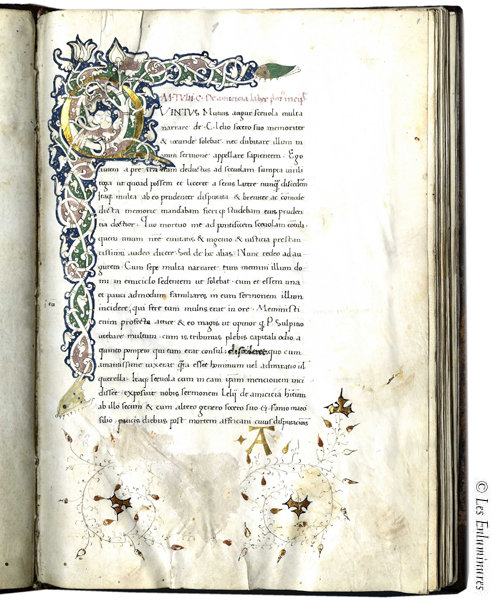 M. TULII. C. De amicicia liber pri⁹ incip
QVINTVS Mutius augur scevola multa
narrare de C. Lelio socero suo memoriter
& iocunde solebat. nec dubitare illum in
omni sermone appellare sapientem. Ego
autem a patre ita eram deductus ad scevolam sumpta virili
toga ut quoad possem et liceret a senis latere nunq̃ discederem
Itaq; multa ab eo prudenter disputata & breviter ac comode
dicta memorie mandabam fieriq; studebam eius pruden
tia doctior. Quo mortuo me ad pontificem scevolam contuli.
quem unum nr̃e civitatis & ingenio & iusticia prestan
tissimum audeo dicere. Sed de hoc alias. Nunc redeo ad au
gurem. Cum sepe multa narraret. tum memini illum do
mi in emiciclo sedentem ut solebat. cum et essem una
et pauci admodum familiares in eum sermonem illum
incidere. qui fere tum multis erat in ore. Meministi
enim profecto attice & eo magis ut opinor q; P. Sulpitio
utebare multum. cum is tribunus plebis capitali odio a
quinto pompeio qui tum erat consul. dissideret quo cum
amantissime vixerat q̃ta esset hominum vel admiratio vel
querella. Itaq; scevola cum in eam ip̃am mencionem inci
disset. exposuit nobis sermonem Lelij de amicitia habitum
ab illo secum & cum altero genero socero suo G. fanio marci
filio. paucis diebus post mortem affricani cuius disputationis
A
© Les Enluminures